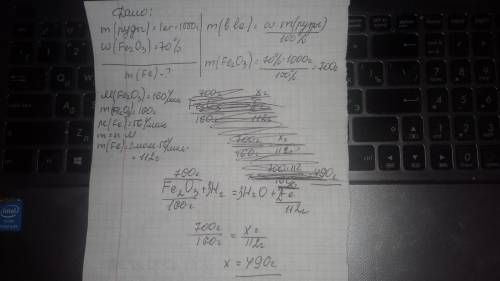 Дано:
m(руды)=1кг=1000г
w(Fe₂O₃)=70%
m(Fe)-?
m(в-ва)= w·m(руды)/100%
m(Fe₂O₃)= 70%·1000г/100% =700г
M(Fe₂O₃)=160г/моль
m(Fe₂O₃)=160г
M(Fe)=56г/моль
m=n·M
m(Fe)=2моль·56г/моль
=112г
700г xг
Fe₂O₃+3H₂=3H₂O+2Fe
160г 112г
700г/160г = xг/112г
x=490г
intel